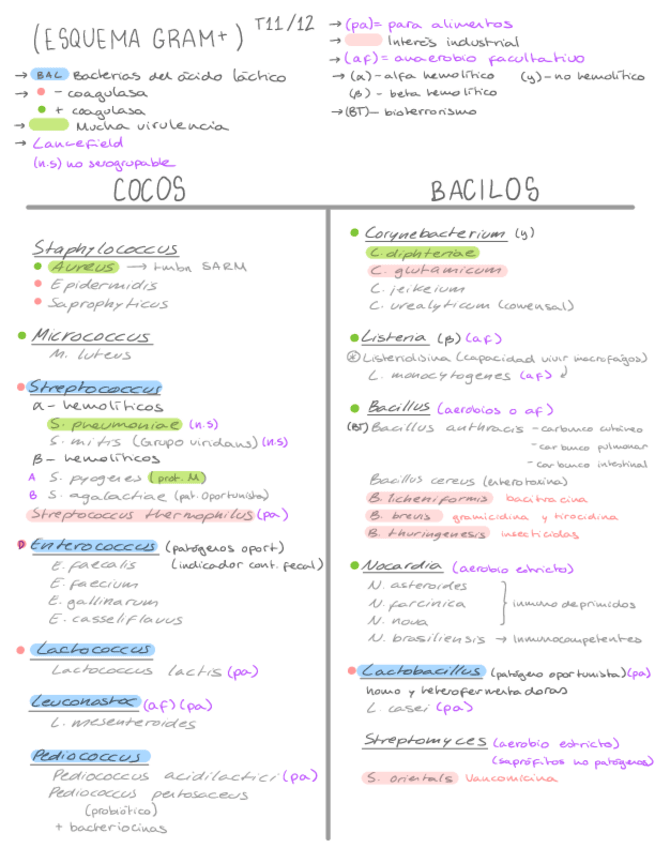 (ESQUEMA GRAM+) T11/12
→ BAL Bacterias del ácido láctico
→ • - coagulasa
• + coagulasa
→ Mucha virulencia
→ Lancefield
(n.s) no serogrupable
→ (pa)= para alimentos
→ Interés industrial
→ (af)= anaerobio facultativo
→ (α)-alfa hemolítico (γ)-no hemolítico
(β) - beta hemolítico
→ (BT)- bioterrorismo
COCOS
Staphylococcus
• Aureus → tmbn SARM
• Epidermidis
• Saprophyticus
• Micrococcus
M. luteus
• Streptococcus
α- hemolíticos
S. pneumoniae (n.s)
S. mitis (Grupo viridans) (n.s)
β- hemolíticos
A S. pyogenes (prot. M)
B S. agalactiae (pat. oportunista)
Streptococcus thermophilus (pa)
D Enterococcus (patógenos oport)
E. faecalis (indicador cont. fecal)
E. faecium
E. gallinarum
E. casseliflavus
• Lactococcus
Lactococcus lactis (pa)
Leuconostoc (af) (pa)
L. mesenteroides
Pediococcus
Pediococcus acidilactici (pa)
Pediococcus pentosaceus
(probiótico)
+ bacteriocinas
BACILOS
• Corynebacterium (γ)
C. diphteriae
C. glutamicum
C. jeikeium
C. urealyticum (comensal)
• Listeria (β) (af)
* Listeriolisina (capacidad vivir macrófagos)
L. monocytogenes (af)
• Bacillus (aerobios o af)
(BT) Bacillus anthracis - carbunco cutáneo
- carbunco pulmonar
- carbunco intestinal
Bacillus cereus (enterotoxina)
B. licheniformis bacitracina
B. brevis gramicidina y tirocidina
B. thuringenesis insecticidas
• Nocardia (aerobio estricto)
N. asteroides
N. farcinica inmunodeprimidos
N. nova
N. brasiliensis → Inmunocompetentes
• Lactobacillus (patógeno oportunista) (pa)
homo y heterofermentadoras
L. casei (pa)
Streptomyces (aerobio estricto)
(saprófitos no patógenos)
S. orientals Vancomicina